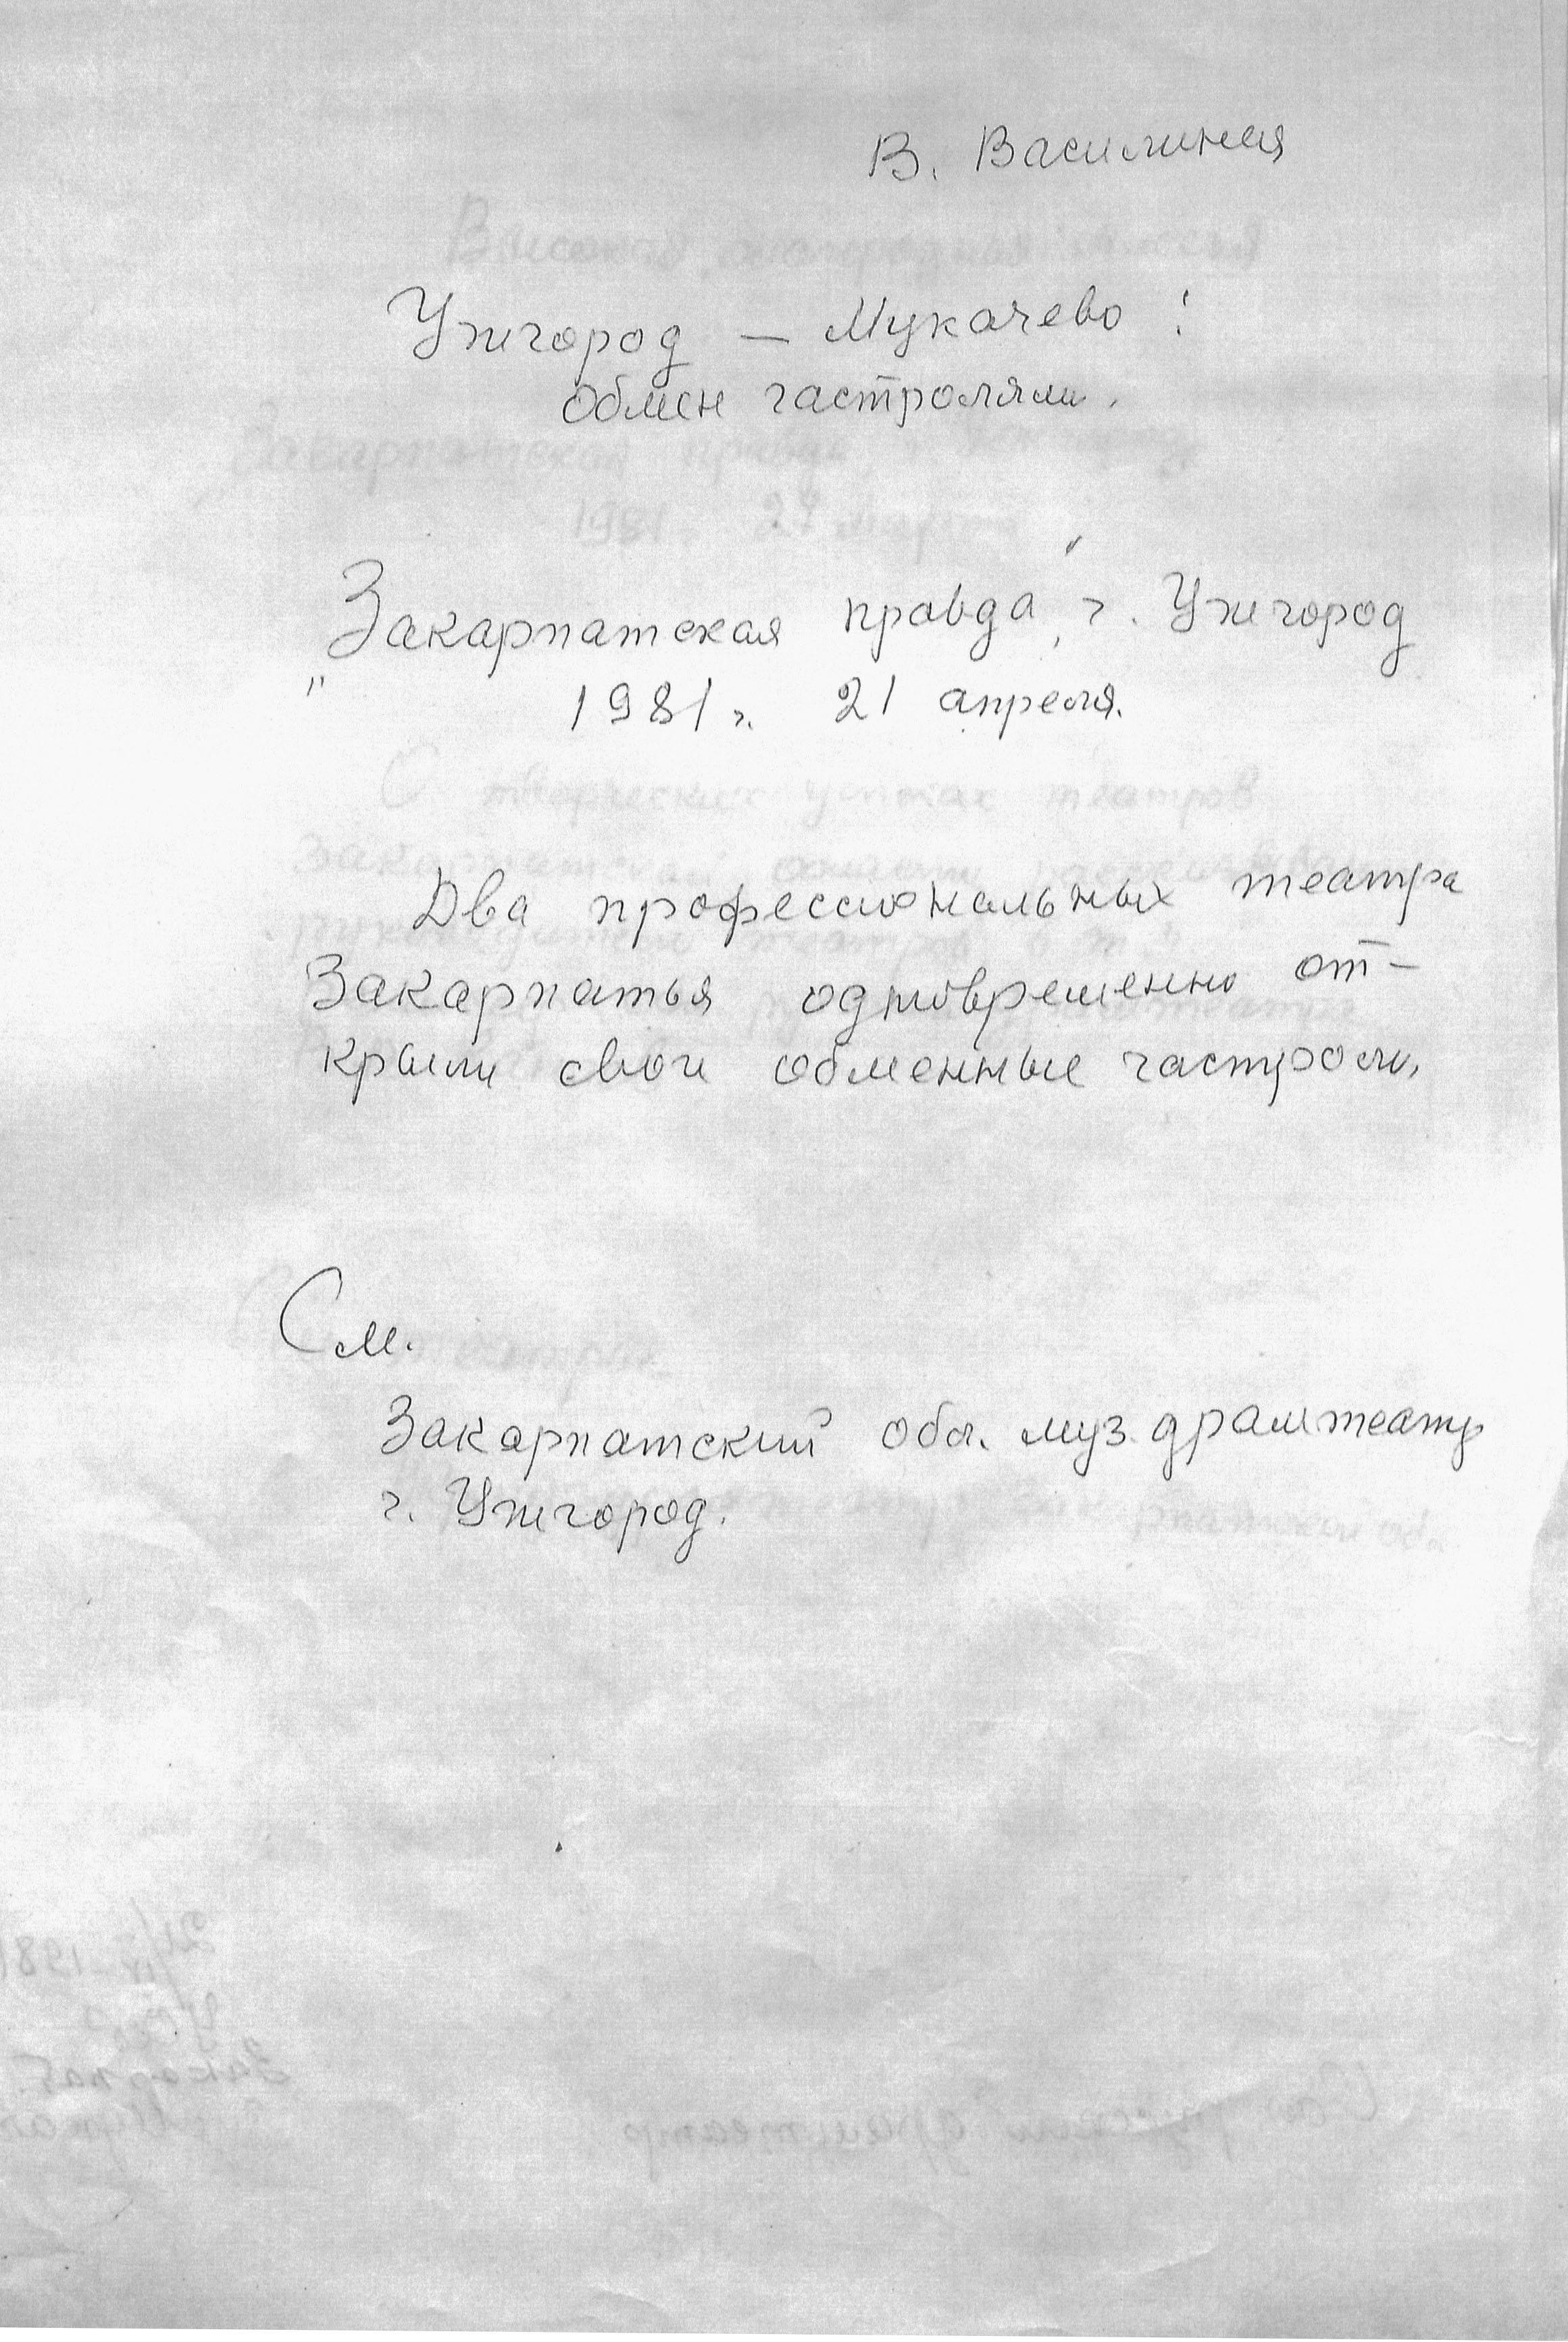 В. Василиная
Ужгород — Мукачево:
обмен гастролями.
"Закарпатская правда", г. Ужгород
1981 г. 21 апреля.
Два профессиональных театра
Закарпатья одновременно от-
крыли свои обменные гастроли,
См.
Закарпатский обл. муз. драмтеатр
г. Ужгород.